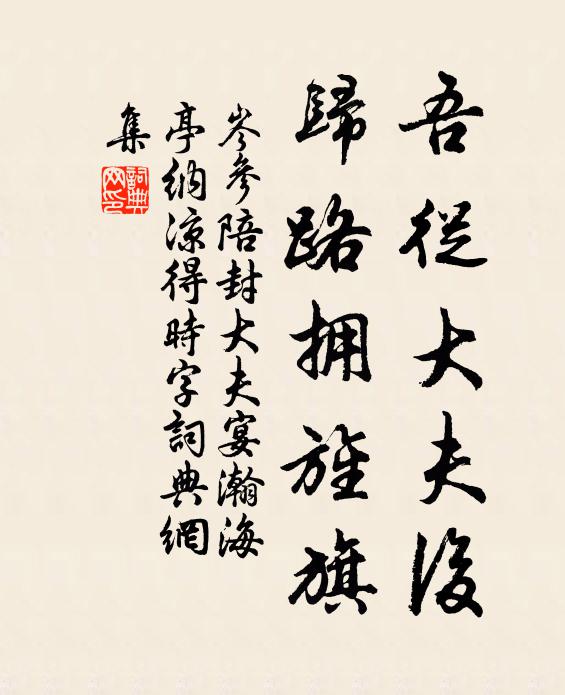 吾從大夫後
歸路拥旌旗
岑參陪封大夫宴瀚海
亭納涼得時字詞典網
集
詞典
网印